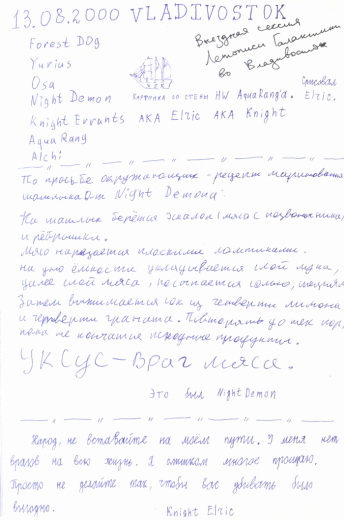 13.08.2000 VLADIVOSTOK
Forest Dog
Yurius
Osa
Night Demon
Knight Errants AKA Elric AKA Knight
Aqua Rang
Alchi
Выездная сессия
Летописи Галактики
во Владивостоке
Картинка со стены HW AquaRang'a. Рисовал Elric.
По просьбе окружающих - рецепт маринования
шашлыка от Night Demona:
На шашлык берётся
и рёбрышки.
Мясо нарезается плоскими ломтиками.
на дно ёмкости укладывается слой лука,
далее слой мяса, посыпается солью,
Затем выжимается сок из четверти лимона
и четверти граната. Повторять до тех пор,
пока не кончатся исходные продукты.
УКСУС - Враг мяса.
Это был Night Demon
Народ, не вставайте на моём пути. У меня нет
врагов на всю жизнь. Я слишком многое прощаю.
Просто не делайте так, чтобы вас убивать было
выгодно.
Knight Elric